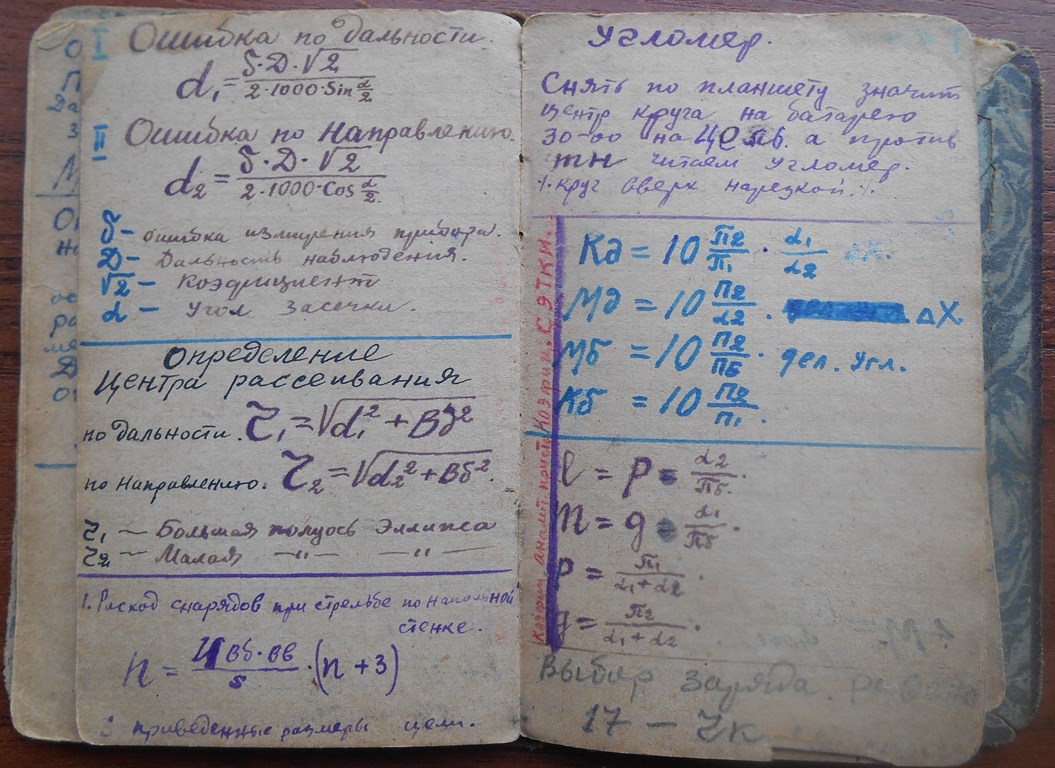 I Ошибка по дальности.
d₁ = δ·Д·√2 / 2·1000·Sin α/2
II Ошибка по направлению.
d₂ = δ·Д·√2 / 2·1000·Cos α/2
δ – ошибка измерения прибора.
Д – Дальность наблюдения.
√2 – Коэфициент
α – Угол засечки.
Определение
Центра рассеивания
по дальности. τ₁ = √d₁² + Вд²
по направлению. τ₂ = √d₂² + Вб²
τ₁ — Большая полуось Эллипса
τ₂ — Малая —"— —"—
1. Расход снарядов при стрельбе по напольной
стенке.
n = 4 Вб·Вв / s · (n + 3)
S приведенные размеры цели.
Угломер.
Снять по планшету значит
центр круга на батарею
30-00 на цель. а против
тн читаем угломер.
·/. круг вверх нарезкой ·/.
Коэфиц. аналит. прист. Коэфиц. СЭТКИ.
Кд = 10 П2/П1 · α1/α2
Мд = 10 П2/α2 · ΔХ.
Мб = 10 П2/Пб · дел. угл.
Кб = 10 П2/П1.
l = p = α2/Пб.
m = g = α1/Пб.
p = П1/α1+α2.
g = П2/α1+α2.
Выбор заряда.
17 —